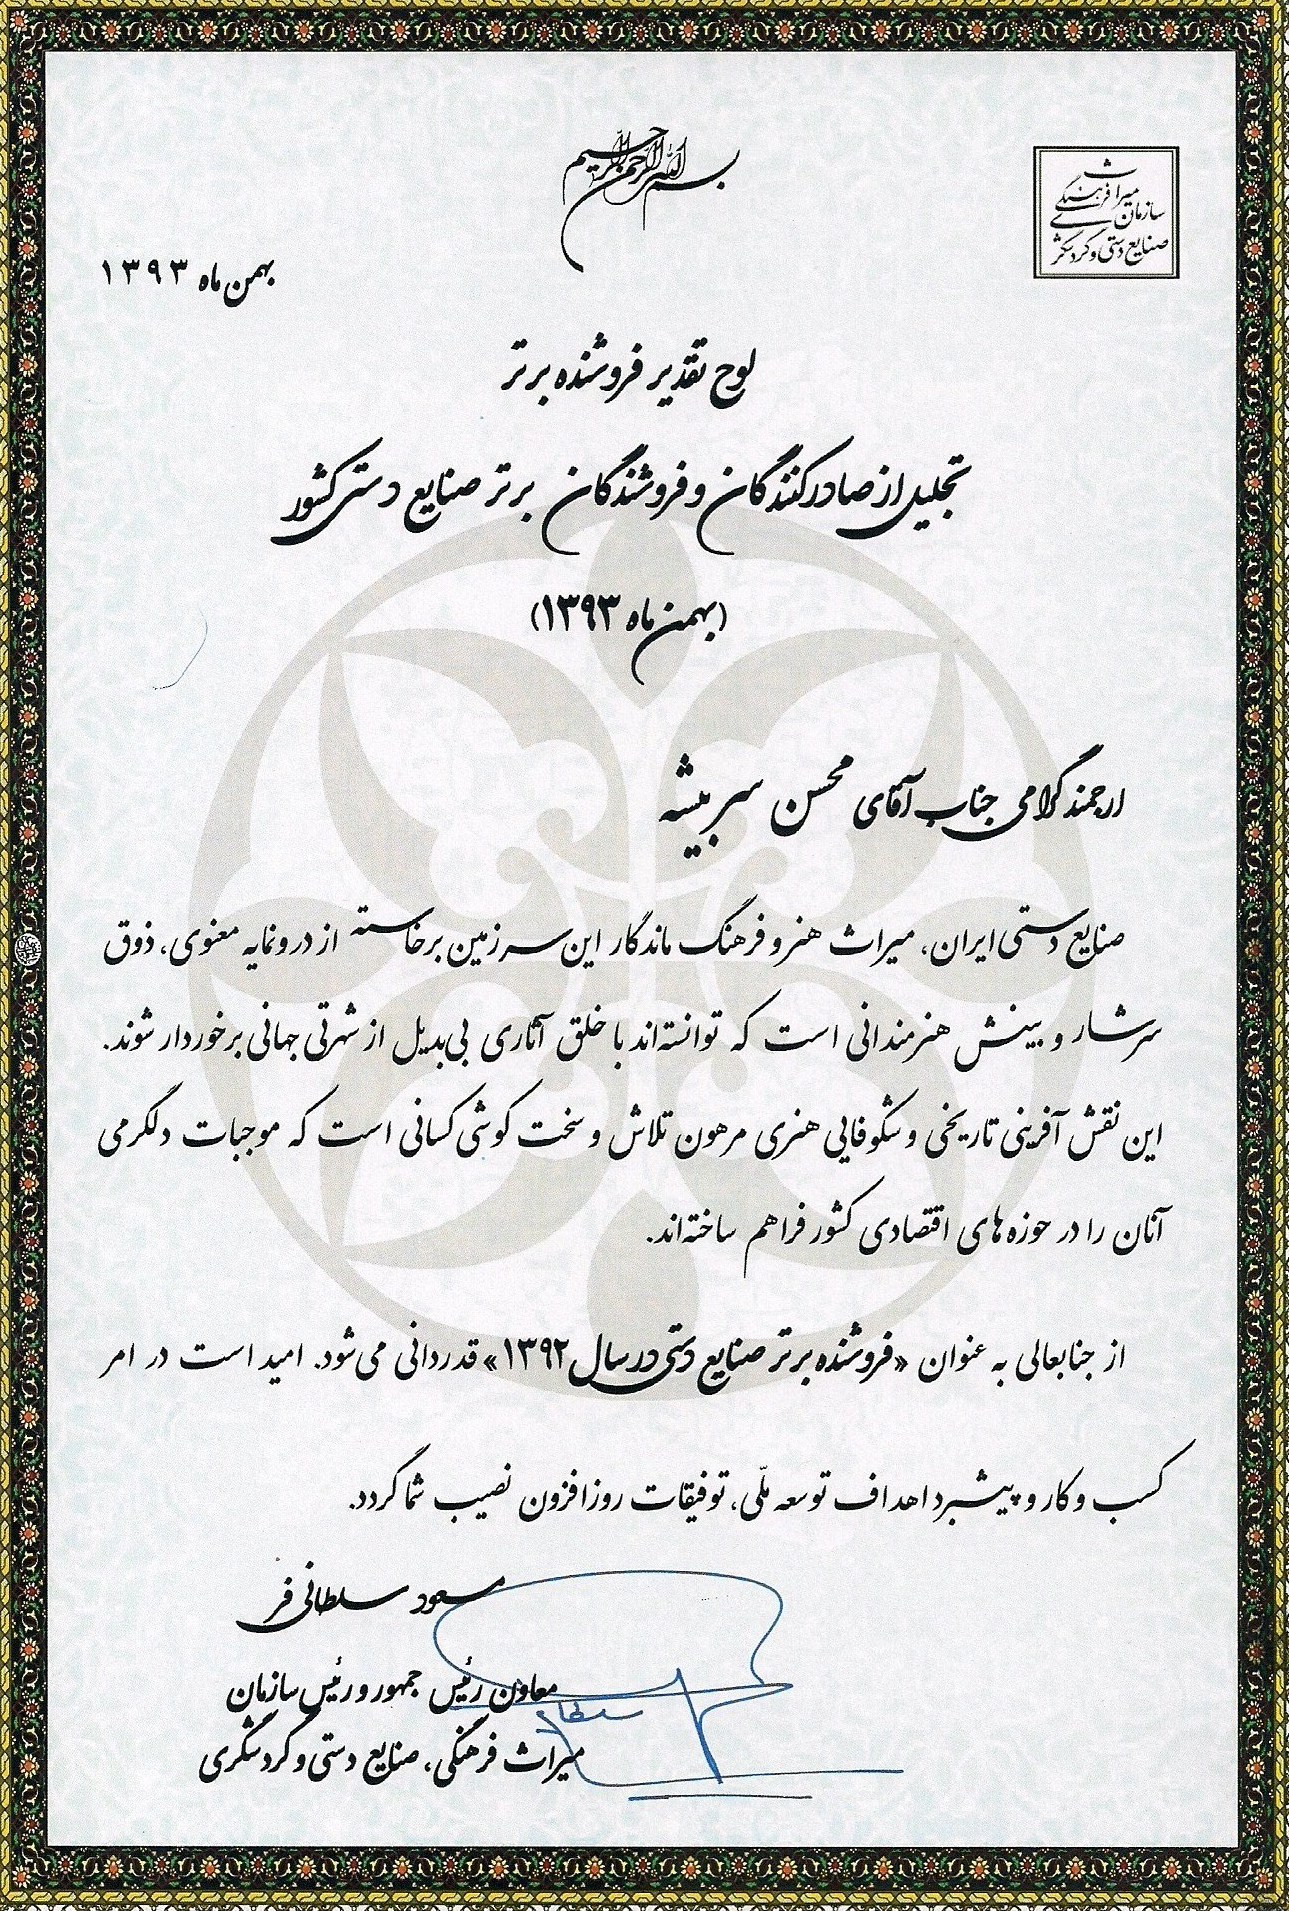 بسم الله الرحمن الرحیم
سازمان میراث فرهنگی
صنایع دستی و گردشگری
بهمن ماه ۱۳۹۳
لوح تقدیر فروشنده برتر
تجلیل از صادرکنندگان و فروشندگان برتر صنایع دستی کشور
(بهمن ماه ۱۳۹۳)
ارجمند گرامی جناب آقای محسن سربیشه
صنایع دستی ایران، میراث هنر و فرهنگ ماندگار این سرزمین برخاسته از درونمایه معنوی، ذوق
سرشار و بینش هنرمندانی است که توانسته‌اند با خلق آثاری بی‌بدیل از شهرتی جهانی برخوردار شوند.
این نقش آفرینی تاریخی و شکوفایی هنری مرهون تلاش و سخت کوشی کسانی است که موجبات دلگرمی
آنان را در حوزه های اقتصادی کشور فراهم ساخته‌اند.
از جنابعالی به عنوان «فروشنده برتر صنایع دستی در سال ۱۳۹۲» قدردانی می‌شود. امید است در امر
کسب و کار و پیشبرد اهداف توسعه ملّی، توفیقات روزافزون نصیب شما گردد.
مسعود سلطانی فر
معاون رئیس جمهور و رئیس سازمان
میراث فرهنگی، صنایع دستی و گردشگری